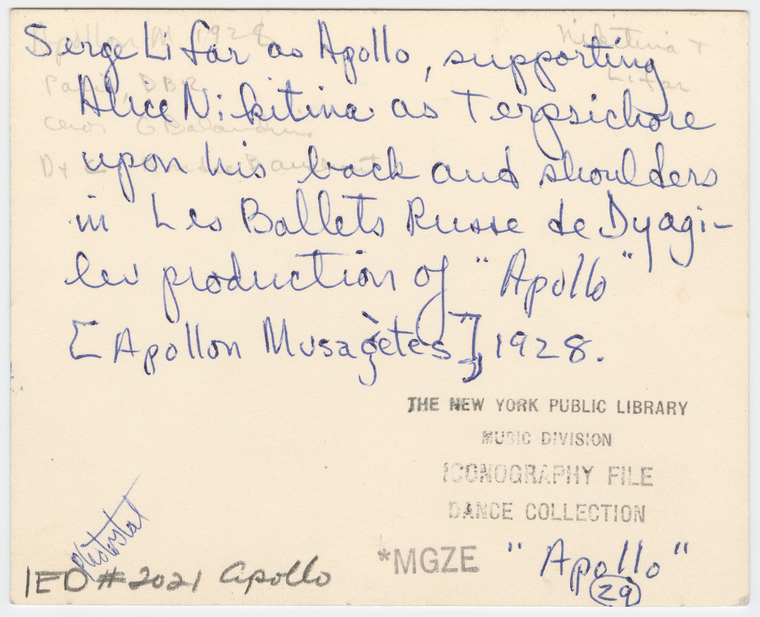 Serge Lifar as Apollo, supporting
Alice Nikitina as Terpsichore
upon his back and shoulders
in Les Ballets Russe de Dyagi-
lev production of "Apollo"
[Apollon Musagètes], 1928.
Nikitina +
Lifar
THE NEW YORK PUBLIC LIBRARY
MUSIC DIVISION
ICONOGRAPHY FILE
DANCE COLLECTION
*MGZE "Apollo"
29
Photostat
IED #2021 Apollo